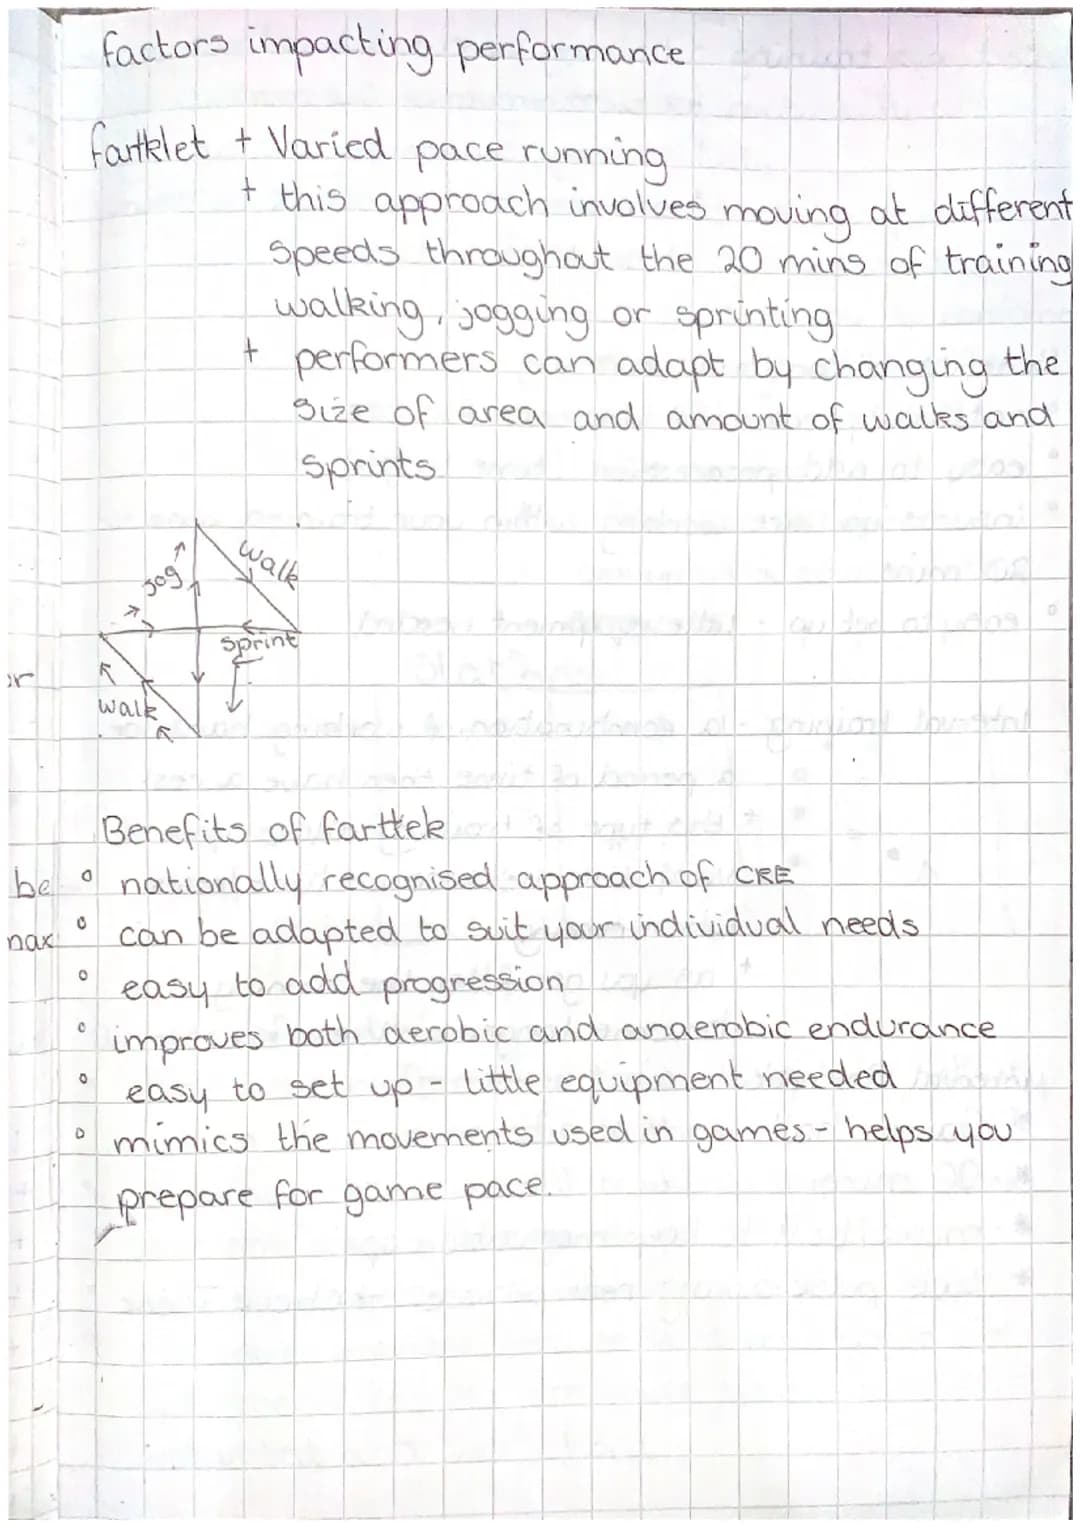 factors impacting performance
fartklet + Varied pace running
+ this approach involves moving at different
speeds throughout the 20 mins of training
walking, jogging or sprinting
+ performers can adapt by changing the
size of area and amount of walks and
sprints
Jog
walk
sprint
er
walk
Benefits of farttek
be ° nationally recognised approach of CRE
nax ° can be adapted to suit your individual needs
° easy to add progression
° improves both aerobic and anaerobic endurance
° easy to set up - little equipment needed
° mimics the movements used in games - helps you
prepare for game pace.